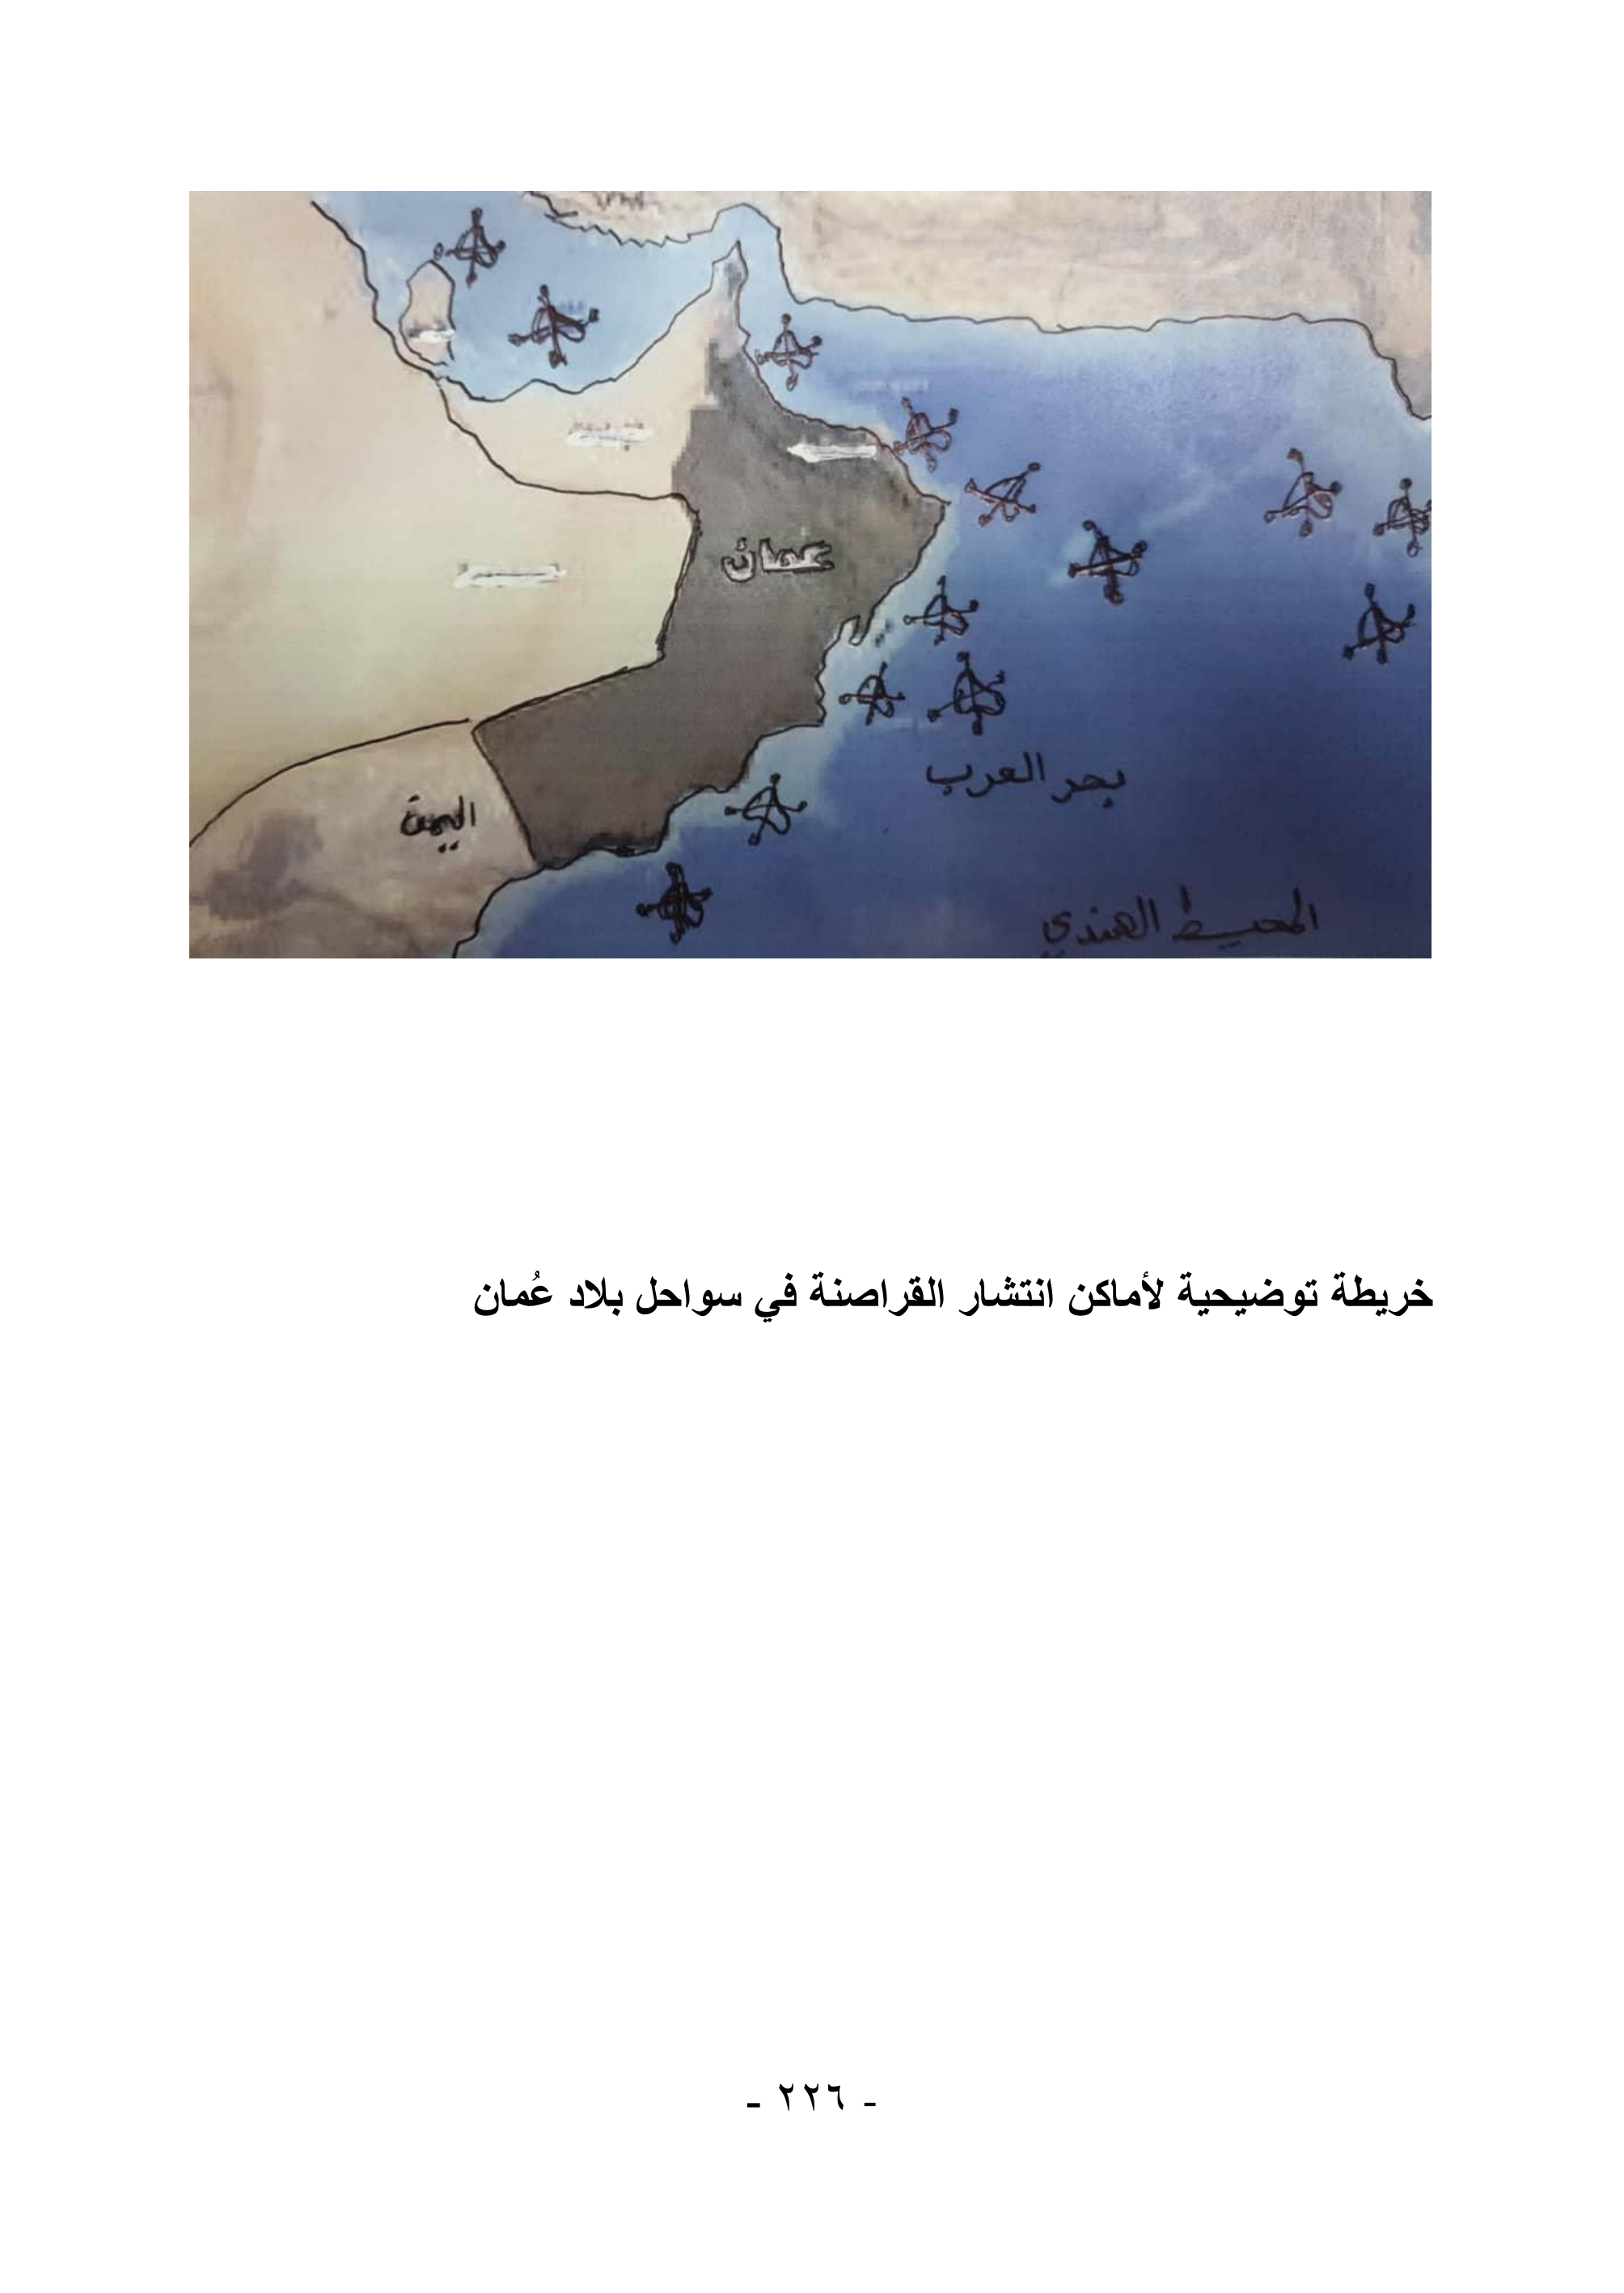 عمان
بحر العرب
اليمن
المحيط الهندي
خريطة توضيحية لأماكن انتشار القراصنة في سواحل بلاد عُمان
- ٢٢٦ -